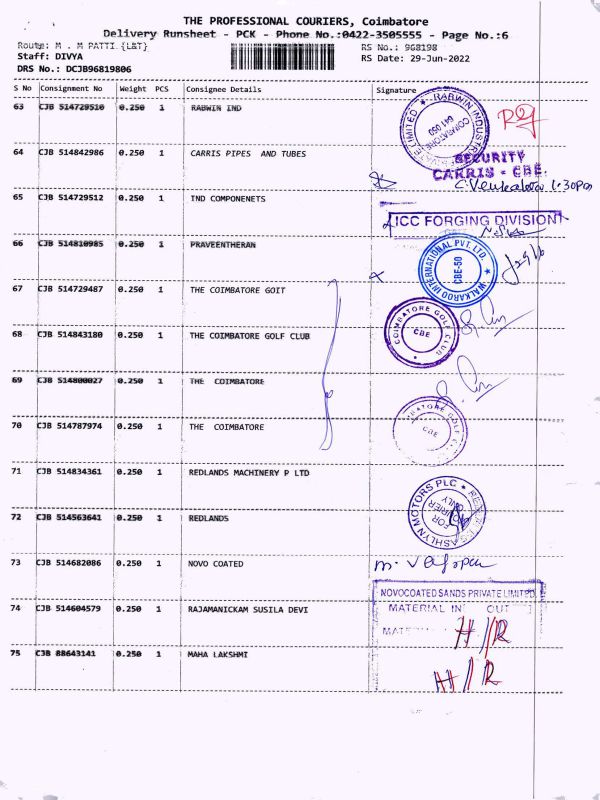 THE PROFESSIONAL COURIERS, Coimbatore
Delivery Runsheet - PCK - Phone No.:0422-3505555 - Page No.:6
Route: M . M PATTI.{L&T} RS No.: 968198
Staff: DIVYA RS Date: 29-Jun-2022
DRS No.: DCJB96819806
S No Consignment No Weight PCS Consignee Details Signature
63 CJB 514729510 0.250 1 RABWIN IND
RABWIN INDUSTRIES PRIVATE LIMITED COIMBATORE 641 050
64 CJB 514842986 0.250 1 CARRIS PIPES AND TUBES
SECURITY
CARRIS - CBE.
C.Venkatesa 1.30pm
65 CJB 514729512 0.250 1 TND COMPONENETS
ICC FORGING DIVISION
66 CJB 514810985 0.250 1 PRAVEENTHERAN
WALKAROO INTERNATIONAL PVT. LTD. CBE-50
67 CJB 514729487 0.250 1 THE COIMBATORE GOIT
COIMBATORE GOLF CLUB CBE
68 CJB 514843180 0.250 1 THE COIMBATORE GOLF CLUB
69 CJB 514800027 0.250 1 THE COIMBATORE
70 CJB 514787974 0.250 1 THE COIMBATORE
COIMBATORE GOLF CLUB CBE
71 CJB 514834361 0.250 1 REDLANDS MACHINERY P LTD
ASHLYN MOTORS PLC FOR COURIER ONLY
72 CJB 514563641 0.250 1 REDLANDS
73 CJB 514682086 0.250 1 NOVO COATED
NOVOCOATED SANDS PRIVATE LIMITED
MATERIAL IN OUT
74 CJB 514604579 0.250 1 RAJAMANICKAM SUSILA DEVI
H/R
75 CJB 88643141 0.250 1 MAHA LAKSHMI
H/R